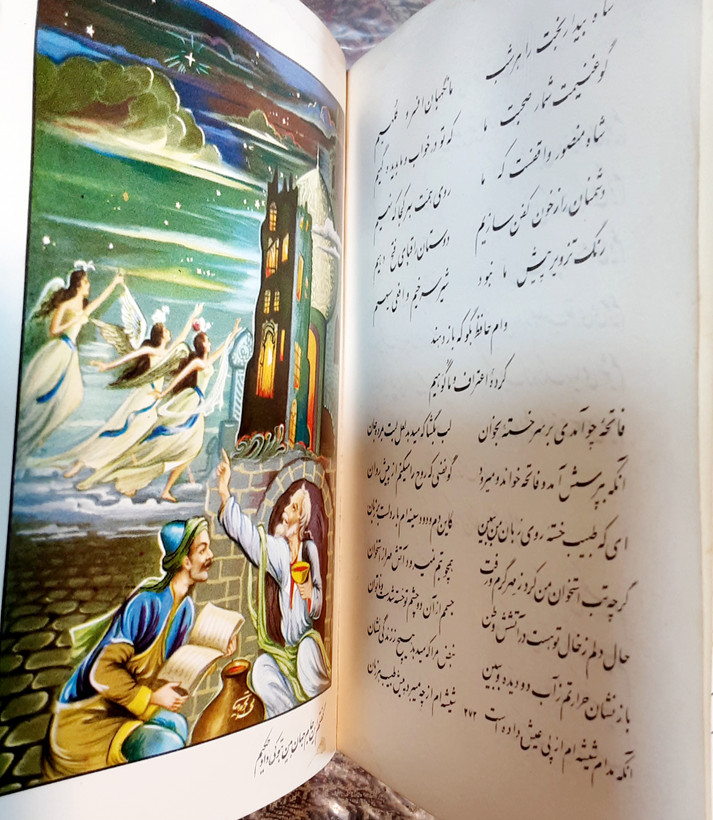 شاه بیدار بخت را هر شب
ما نگهبان افسر و کلهیم
گو غنیمت شمار صحبت ما
که تو در خواب و ما بدیده گهیم
شاه منصور واقفست که ما
روی همت بهر کجا که نهیم
دشمنان را ز خون کفن سازیم
دوستان را قبای فتح دهیم
رنگ تزویر پیش ما نبود
شیر سرخیم و افعی سیهیم
وام حافظ بگو که باز دهند
کردهٔ اعتراف و ما گوهیم
فاتحهٔ چو آمدی بر سر خستهٔ بخوان
لب بگشا که میدهد لعل لبت بمرده جان
آنکه بپرسش آمد و فاتحه خواند و میرود
گو نفسی که روح را میکنم از پیش روان
ای که طبیب خستهٔ روی زبان من ببین
کاین دم و دود سینه‌ام بار دلست بر زبان
گرچه تب استخوان من کرد ز مهر گرم و رفت
همچو تبم نمیرود آتش مهر از استخوان
حال دلم ز خال تو هست در آتشش وطن
جسمم از آن دو چشم تو خسته شدست و ناتوان
باز نشان حرارتم ز آب دو دیده و ببین
نبض مرا که میدهد هیچ ز زندگی نشان
آنکه مدام شیشه‌ام از پی عیش داده است
شیشه‌ام از چه میبرد پیش طبیب هر زمان
۲۷۲
گفتم این جام جهان بین بتو کی داد حکیم